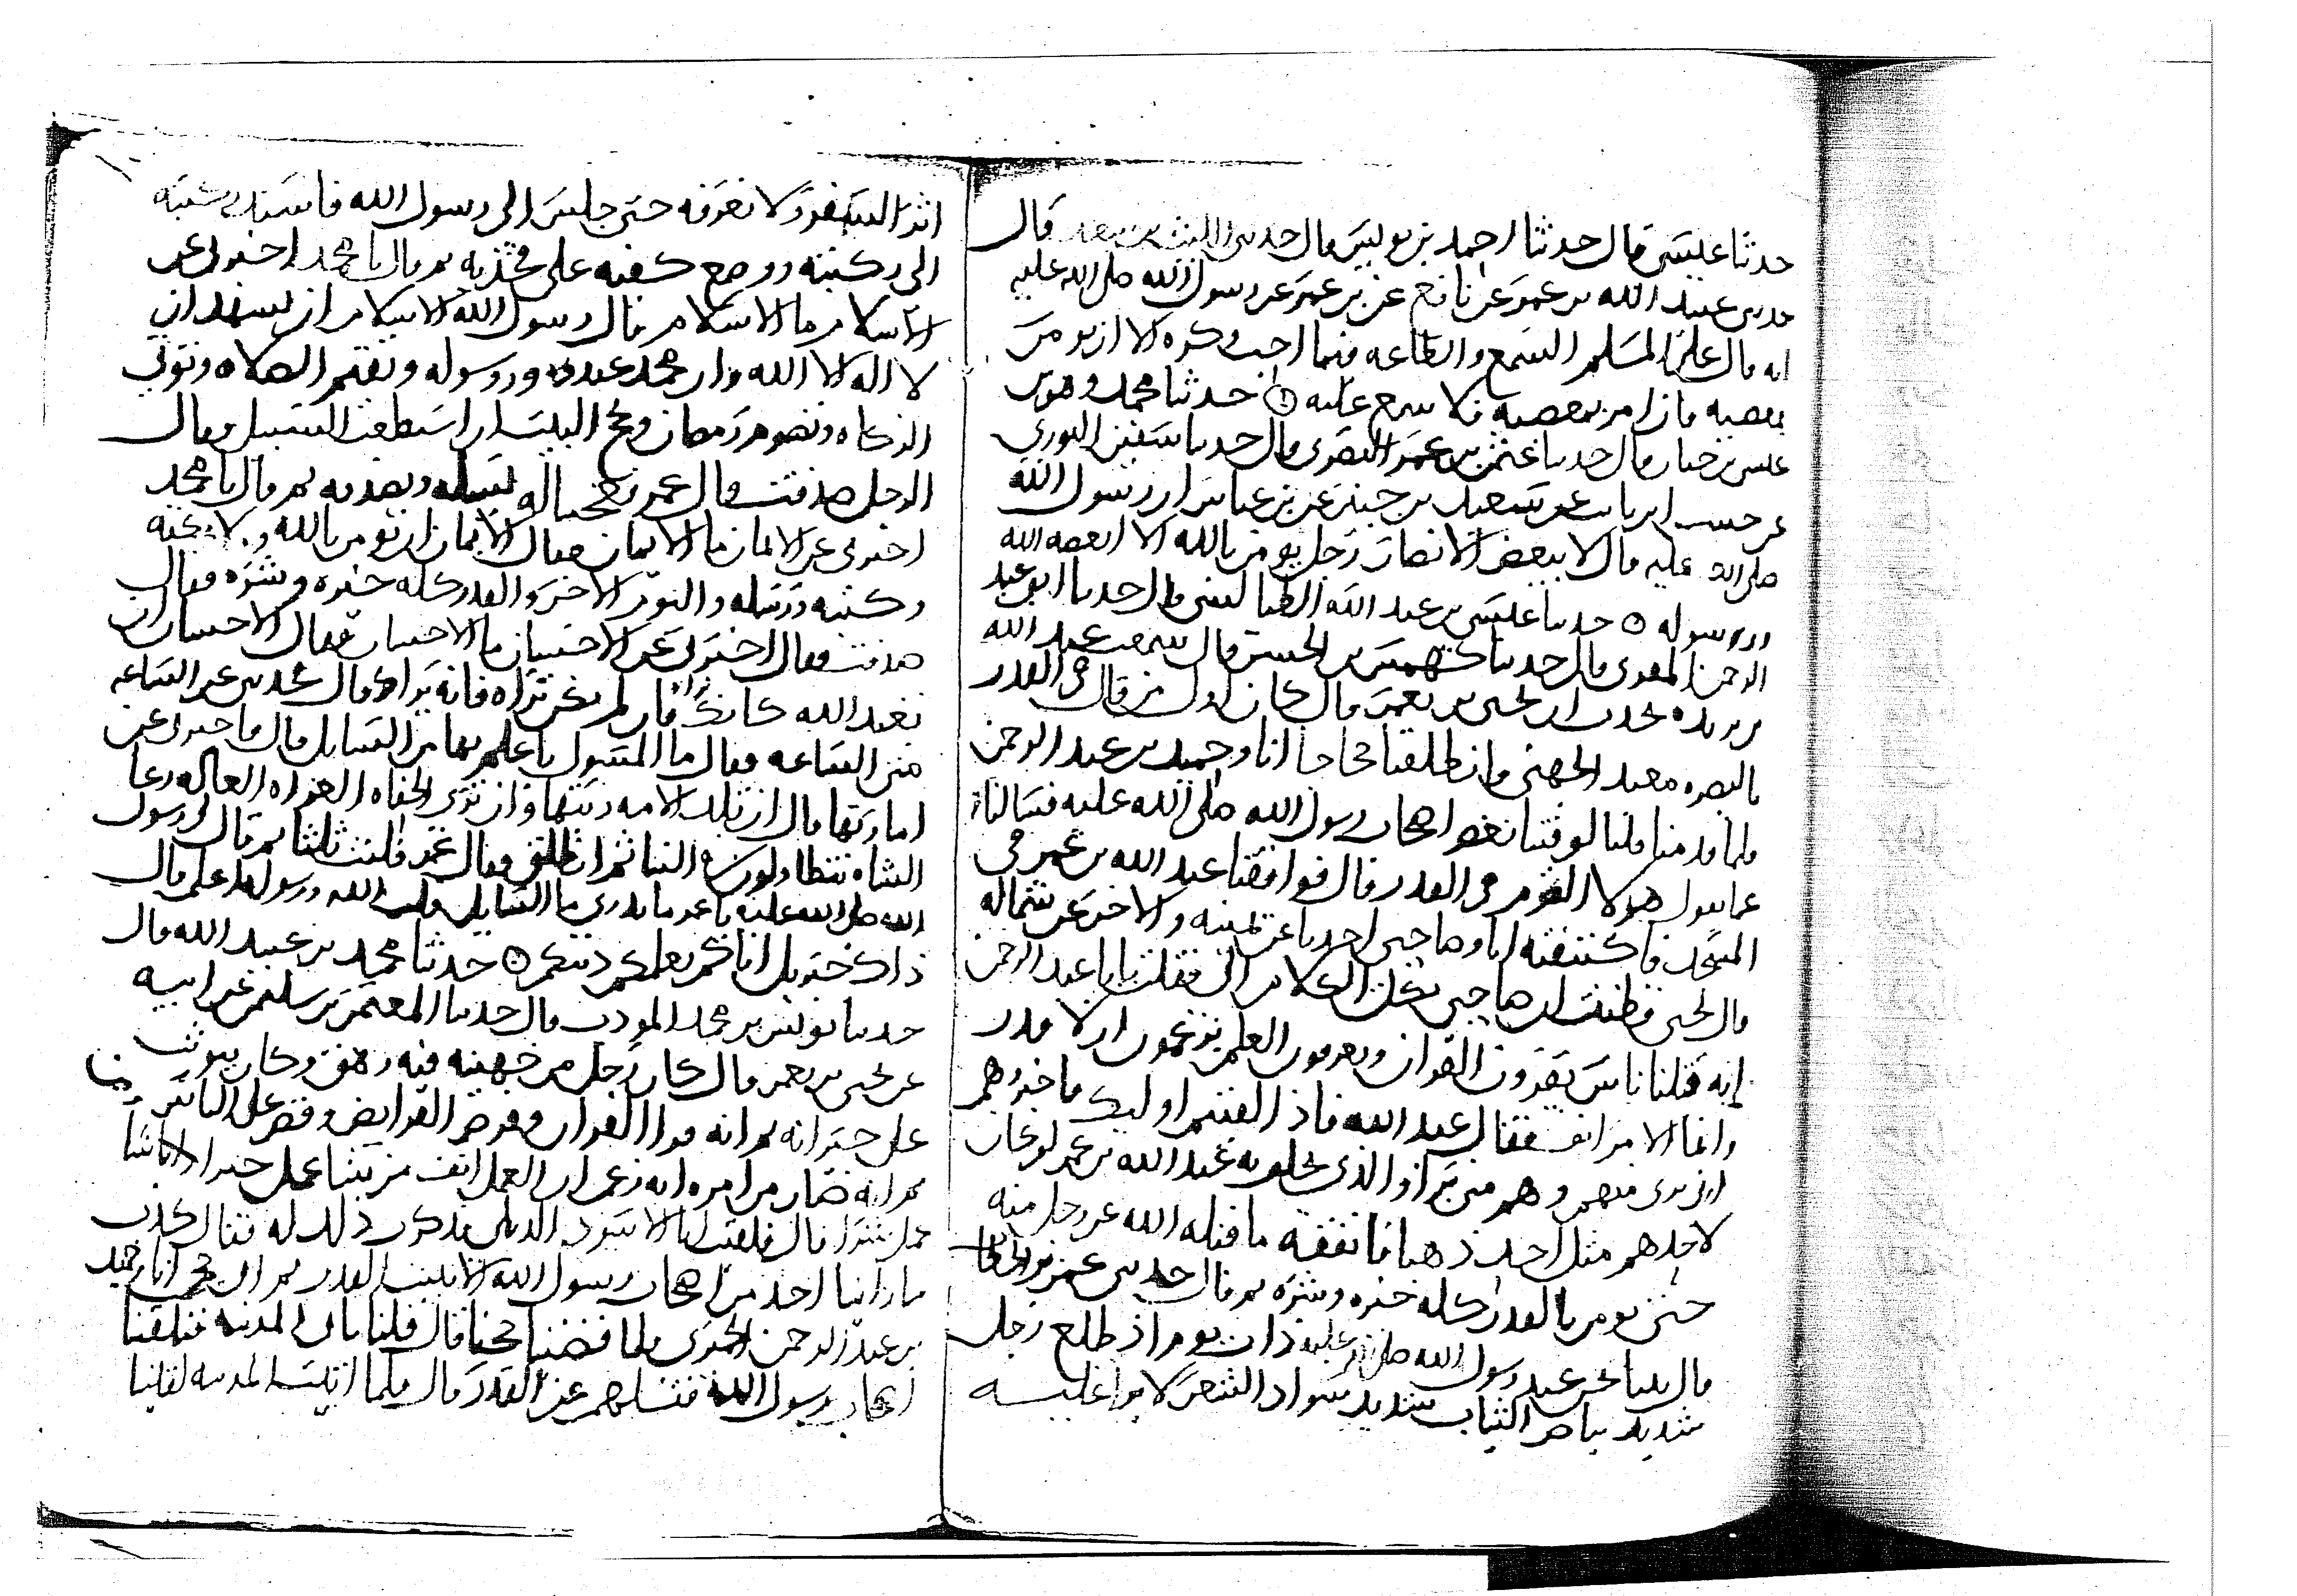 حدثنا عيسى قال حدثنا احمد بن يونس قال حدثنى الليث بن سعد قال
حدثنى عبيد الله بن عمر عن نافع عن بن عمر عن رسول الله صلى الله عليه
انه قال على المسلم السمع والطاعه فيما احب وكره الا ان يومر
بمعصيه فان امر بمعصيه فلا سمع عليه حدثنا محمد وهو بن
عيسى بن حيان قال حدثنا عثمن بن عمر البصرى قال حدثنا سفين الثورى
عن حبيب بن ابى ثابت عن سعيد بن جبير عن بن عباس ان رسول الله
صلى الله عليه قال لا يبغض الانصار رجل يومن بالله الا ابغضه الله
ورسوله حدثنا عيسى بن عبد الله الطيالسى قال حدثنا ابو عبد
الرحمن المقرى قال حدثنا كهمس بن الحسن قال سمعت عبد الله
بن بريده يحدث ان يحيى بن يعمر قال كان اول من قال فى القدر
بالبصره معبد الجهنى وانطلقنا حجاجا انا وحميد بن عبد الرحمن
فلما قدمنا قلنا لو لقينا بعض اصحاب رسول الله صلى الله عليه فسالناه
عما يقول هولا القوم فى القدر قال فوافقنا عبد الله بن عمر فى
المسجد فاكتنفته انا وصاحبى احدنا عن يمينه والاخر عن شماله
قال يحيى فظننت ان صاحبى يكل الكلام الى فقلت يابا عبد الرحمن
انه قبلنا ناس يقرون القران ويعرفون العلم يزعمون ان لا قدر
وانما الامر انف فقال عبد الله فاذا لقيتم اوليك فاخبروهم
انى برى منهم وهم منى برا والذى يحلف به عبد الله بن عمر لو كان
لاحدهم مثل احد ذهبا فانفقه ما قبله الله عز وجل منه
حتى يومن بالقدر كله خيره وشره ثم قال حدثنى عمر بن الخطاب
قال بينا نحن عند رسول الله صلى الله عليه ذات يوم اذ طلع رجل
شديد بياض الثياب شديد سواد الشعر لا يرا عليه
اثر السفر ولا نعرفه حتى جلس الى رسول الله فاسند ركبته
الى ركبته ووضع كفيه على فخذيه ثم قال يا محمد اخبرنى عن
الاسلام ما الاسلام قال رسول الله الاسلام ان تشهد ان
لا اله الا الله وان محمد عبده ورسوله وتقيم الصلاه وتوتى
الزكاه وتصوم رمضان وتحج البيت ان استطعت السبيل وقال
الرجل صدقت قال عمر فعجبنا له يسله ويصدقه ثم قال يا محمد
اخبرنى عن الايمان ما الايمان فقال الايمان ان تومن بالله وملايكته
وكتبه ورسله واليوم الاخر والقدر كله خيره وشره فقال
صدقت فقال اخبرنى عن الاحسان ما الاحسان فقال الاحسان ان
تعبد الله كانك تراه فان لم تكن تراه فانه يراك قال فحدثنى عن الساعه
متى الساعه فقال ما المسول باعلم بها من السايل قال فاخبرنى عن
امارتها قال ان تلد الامه ربتها وان ترى الحفاه العراه العاله رعا
الشاه تتطاولون فى البنا ثم انطلق فقال عمر فلبثت ثلثا ثم قال لى رسول
الله صلى الله عليه يا عمر ما تدرى ما السايل قلت الله ورسوله اعلم قال
ذاك جبريل اتاكم يعلمكم دينكم حدثنا محمد بن عبيد الله قال
حدثنا يونس بن محمد المودب قال حدثنا المعتمر بن سليمن عن ابيه
عن يحيى بن يعمر قال كان رجل من جهينه فيه رهق وكان يتوثب
على جيرانه ثم انه قرا القران وفرض الفرايض وقص على الناس
ثم انه صار من امره انه زعم ان العمل انف من شا عمل خيرا ومن شا
عمل شرا قال فلقيت ابا الاسود الديلى فذكرت ذلك له فقال كذب
ما راينا احد من اصحاب رسول الله الا يثبت القدر ثم انى حججت انا وحميد
بن عبد الرحمن الحميرى فلما قضينا حجنا قال قلنا ناتى المدينه فنلقى
اصحاب رسول الله فنسلهم عن القدر قال فلما اتيت المدينه لقينا